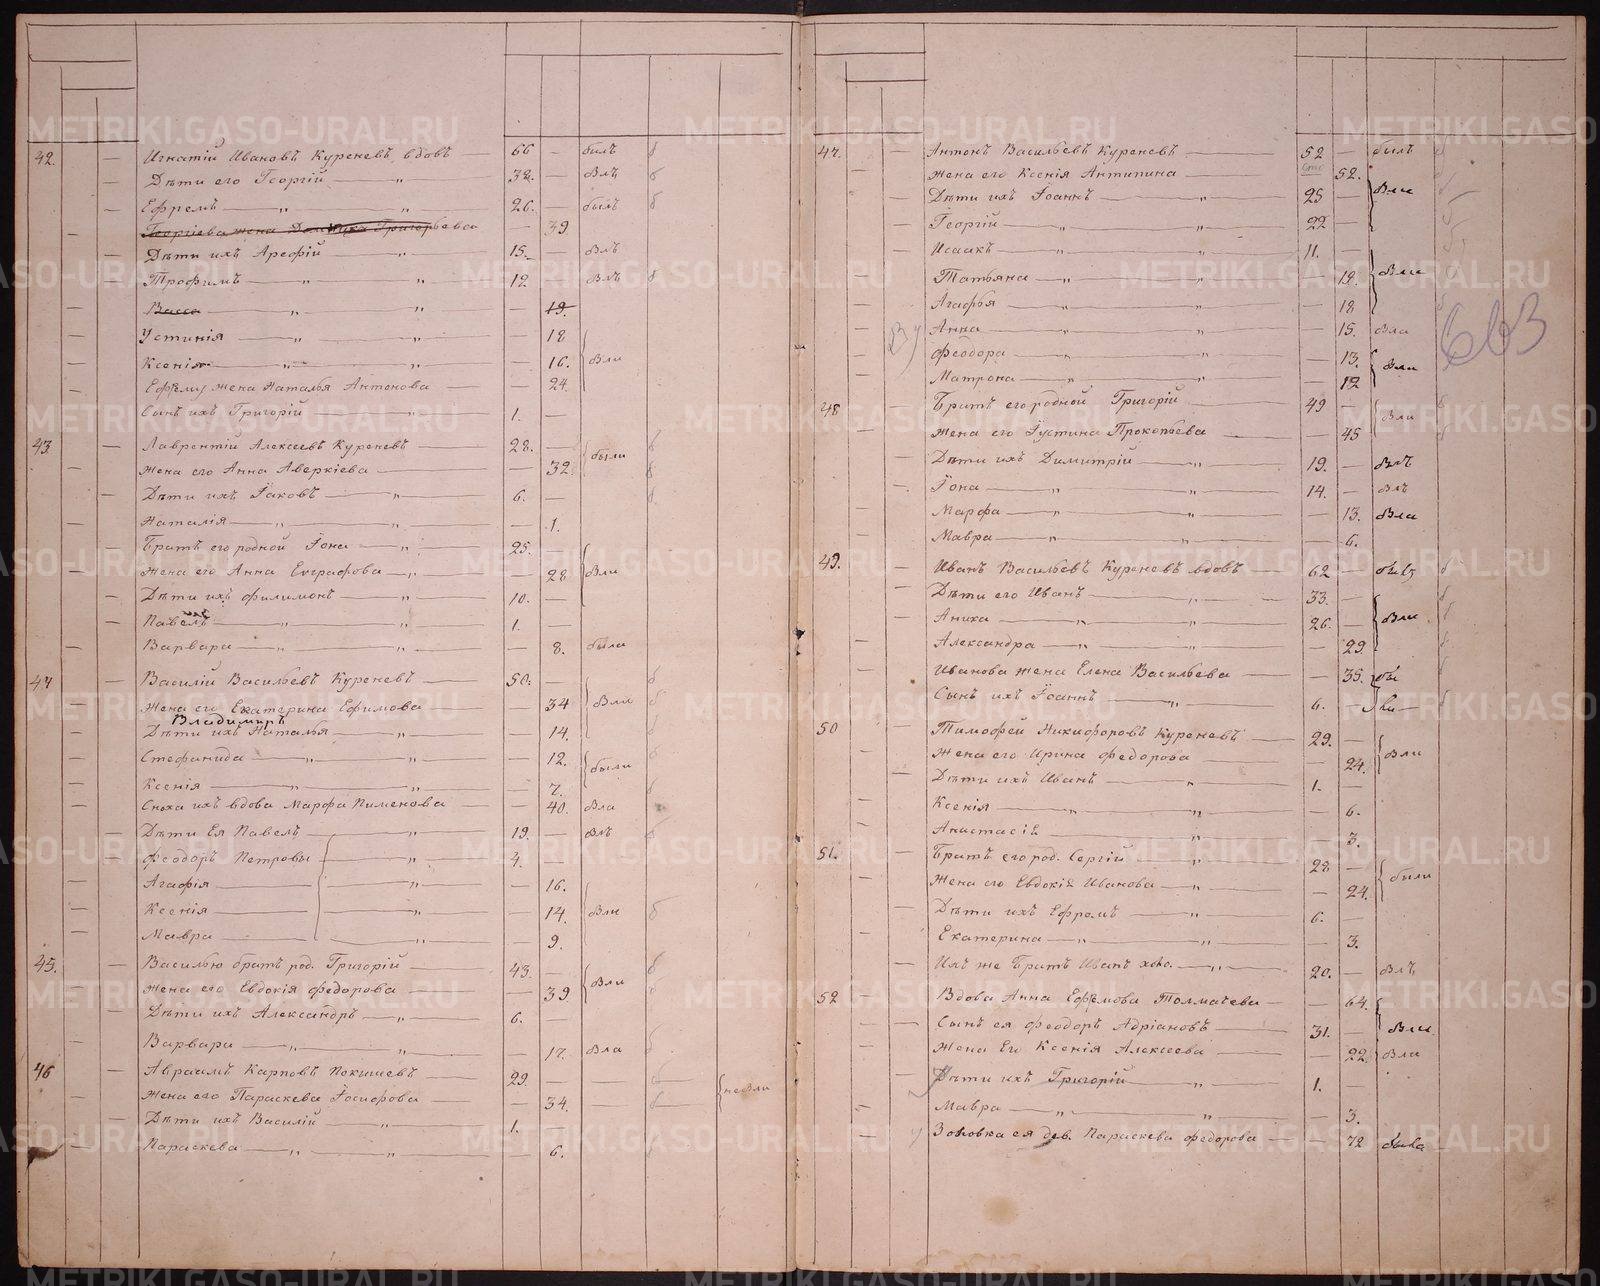 42. — Игнатій Ивановъ Куреневъ, вдовъ 66 — былъ б
— Дѣти его Георгій — „ 32. — Блъ б
— Ефремъ — „ — „ 26. — былъ б
— Георгіева жена Григорьева — 39
— Дѣти ихъ Арефій — „ 15. — Блъ
— Трофимъ — „ — „ 12 — Влъ б
— Васса — „ — „ — 19.
— Устинія — „ — „ — 18
— Ксенія — „ — „ — 16. Бли
— жена Наталья Антонова — 24.
— Сынъ ихъ Григорій — „ 1. —
43 — Лаврентій Алексеевъ Куреневъ 28. — б
— жена его Анна Аверкіева — 32. были б
— Дѣти ихъ Іаковъ — „ 6. — б
— Наталія — „ — „ — 1.
— Братъ его родной Іона — „ 25. —
— жена его Анна Евграфова — „ — 28 Бли
— Дѣти ихъ Филимонъ — „ 10. —
— Павелъ — „ — „ 1. —
— Варвара — „ — „ — 8. была
44 — Василій Васильевъ Куреневъ — 50. — б
— жена его Екатерина Ефимова — 34 Бли б
Владимиръ
— Дѣти ихъ Наталья — „ — 14. б
— Стефанида — „ — „ — 12. были б
— Ксенія — „ — „ — 7. б
— Сноха ихъ вдова Марфа Пименова — 40. Бла
— Дѣти Ея Павелъ — „ 19. — Блъ б
— Феодоръ Петровы — „ 4. —
— Агафія — „ — 16.
— Ксенія — „ — 14. Бли б
— Мавра — „ — 9.
45. — Василью братъ род. Григорій — 43. — б
— жена его Евдокія Федорова — 39. Бли б
— Дѣти ихъ Александръ — „ 6. —
— Варвара — „ — „ — 17. Бла б
46 — Авраамъ Карповъ — 29. — б
— жена его Параскева Іосифова — 34. — б не бли
— Дѣти ихъ Василій — „ 1. —
— Параскева — „ — „ — 6.
47. — Антонъ Васильевъ Куреневъ — 52 — былъ б
— жена его Ксенія Антипина — 52.
— Дѣти ихъ Іоаннъ — „ 25 — Бли
— Георгій — „ — „ 22 —
— Исаакъ — „ — „ 11. —
— Татьяна — „ — „ — 19. Бли
— Агафья — „ — „ — 18
— Анна — „ — „ — 15. Бла
663
— Феодора — „ — 13.
— Матрона — „ — „ — 12 Бли
48 — Братъ его родной Григорій — 49 — б
— жена его Іустина Прокопьева — 45 Бли б
— Дѣти ихъ Димитрій — „ 19. — Блъ
— Іона — „ — „ 14. — Блъ
— Марфа — „ — „ — 13. Бла
— Мавра — „ — „ — 6.
49. — Иванъ Васильевъ Куреневъ вдовъ — 62 — былъ б
— Дѣти его Иванъ — „ 33. — б
— Аника — „ — „ 26. — Бли б
— Александра — „ — „ — 29 б
— Иванова жена Елена Васильева — 35. б
— Сынъ ихъ Іоаннъ — „ 6. — б
50 — Тимофей Никифоровъ Куреневъ — 29. —
— жена его Ирина Федорова — „ — 24. Бли
— Дѣти ихъ Иванъ — „ 1. —
— Ксенія — „ — „ — 6.
— Анастасія — „ — 3.
51. — Братъ его род. Сергій — „ 28 —
— жена его Евдокія Иванова — „ — 24. были
— Дѣти ихъ Ефремъ — „ 6. —
— Екатерина — „ — „ — 3.
— Ихъ же братъ Иванъ хол. — „ 20. — Блъ
52 — Вдова Анна Ефремова Толмачева — 64.
— Сынъ ея Феодоръ Адріановъ — 31. — Бли
— жена Его Ксенія Алексеева — 22. Бла
— Дѣти ихъ Григорій — „ 1. —
— Мавра — „ — „ — 3.
— Золовка ея дев. Параскева Федорова — 72 была